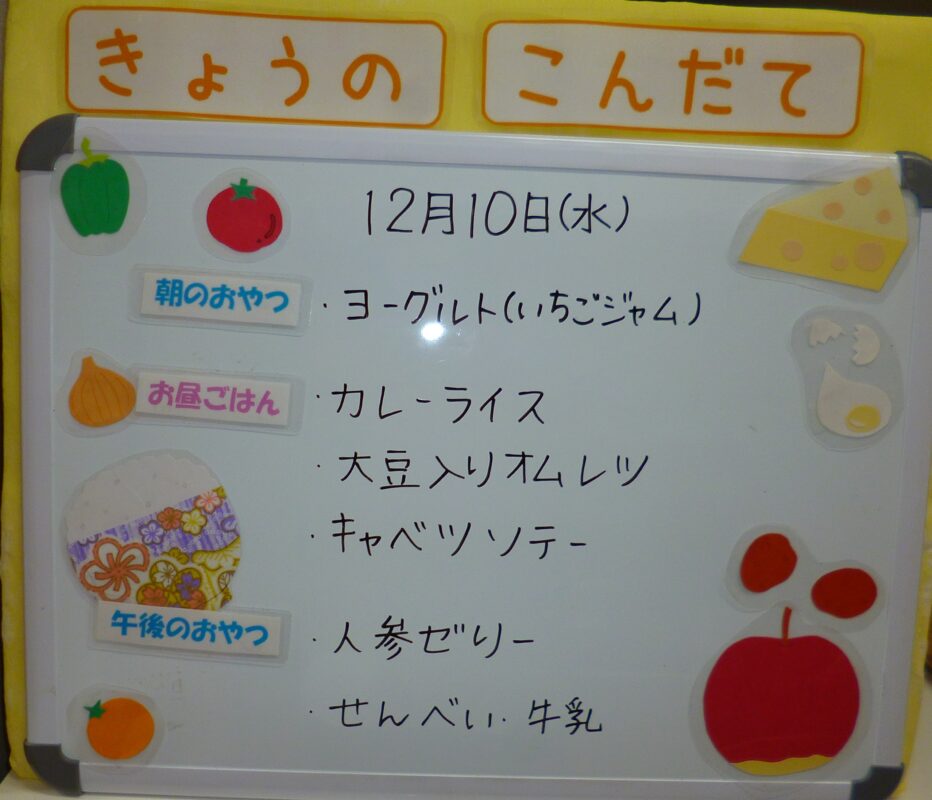 きょうの こんだて
12月10日(水)
朝のおやつ ・ヨーグルト(いちごジャム)
お昼ごはん ・カレーライス
・大豆入りオムレツ
・キャベツソテー
午後のおやつ ・人参ゼリー
・せんべい・牛乳